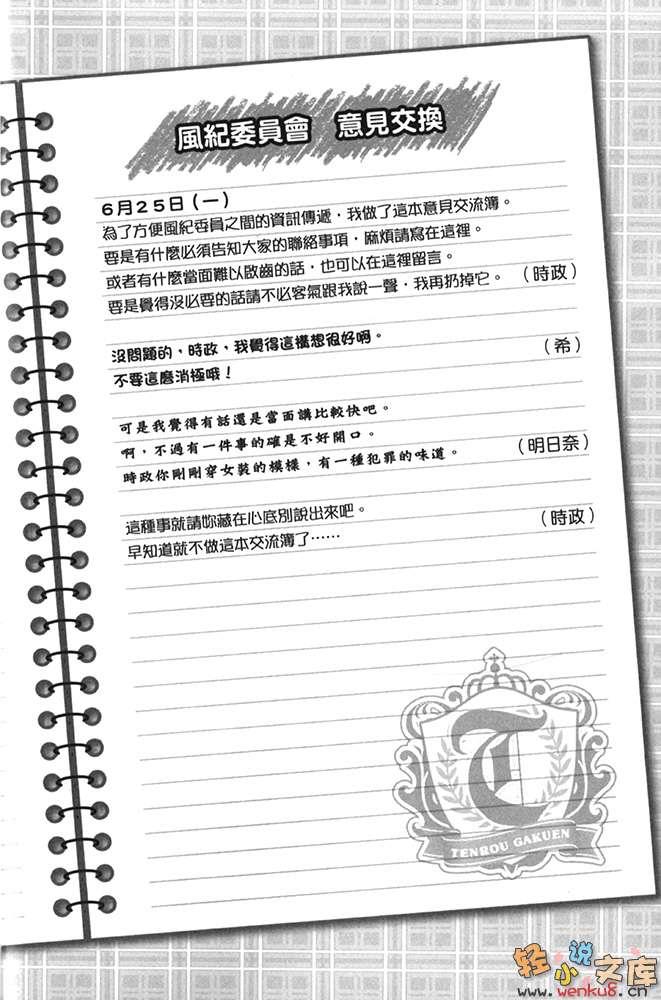 風紀委員會　意見交換
6月25日(一)
為了方便風紀委員之間的資訊傳遞，我做了這本意見交流簿。
要是有什麼必須告知大家的聯絡事項，麻煩請寫在這裡。
或者有什麼當面難以啟齒的話，也可以在這裡留言。
要是覺得沒必要的話請不必客氣跟我說一聲，我再扔掉它。（時政）
沒問題的，時政，我覺得這構想很好啊。（希）
不要這麼消極哦！
可是我覺得有話還是當面講比較快吧。
啊，不過有一件事的確是不好開口。
時政你剛剛穿女裝的模樣，有一種犯罪的味道。（明日奈）
這種事就請妳藏在心底別說出來吧。（時政）
早知道就不做這本交流簿了……
T
TENROU GAKUEN
轻小说文库
www.wenku8.cn